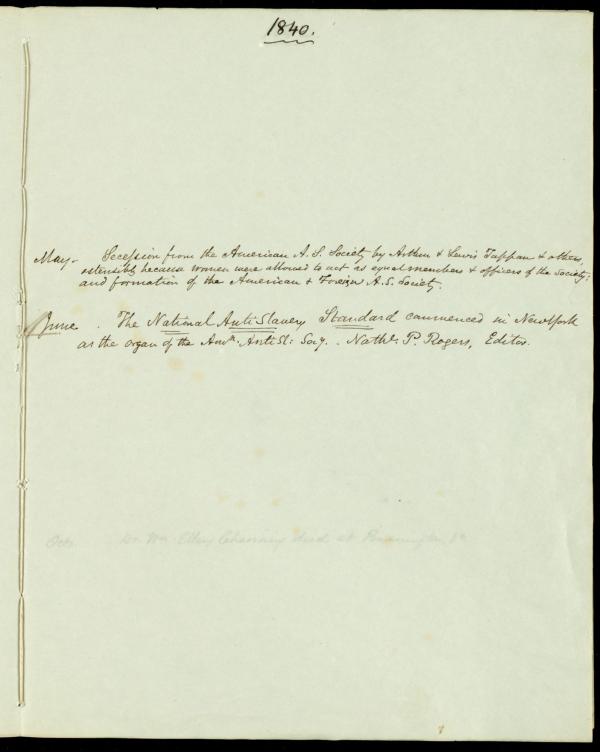 1840.
May. Secession from the American A. S. Society by Arthur & Lewis Tappan & others,
ostensibly because women were allowed to act as equal members & officers of the Society;
and formation of the American & Foreign A. S. Society.
June. The National Anti Slavery Standard commenced in New York
as the organ of the Amn. Anti Sl: Socy. Nathl. P. Rogers, Editor.
Octr. Dr. Wm. Ellery Channing died at